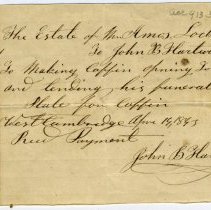 The Estate of Mr Amos Loc
To John B Hartw
To Making Coffin opning To
and tending his funeral
Plate for Coffin
West Cambridge Apr 14, 1843
Recd Payment
John B Har